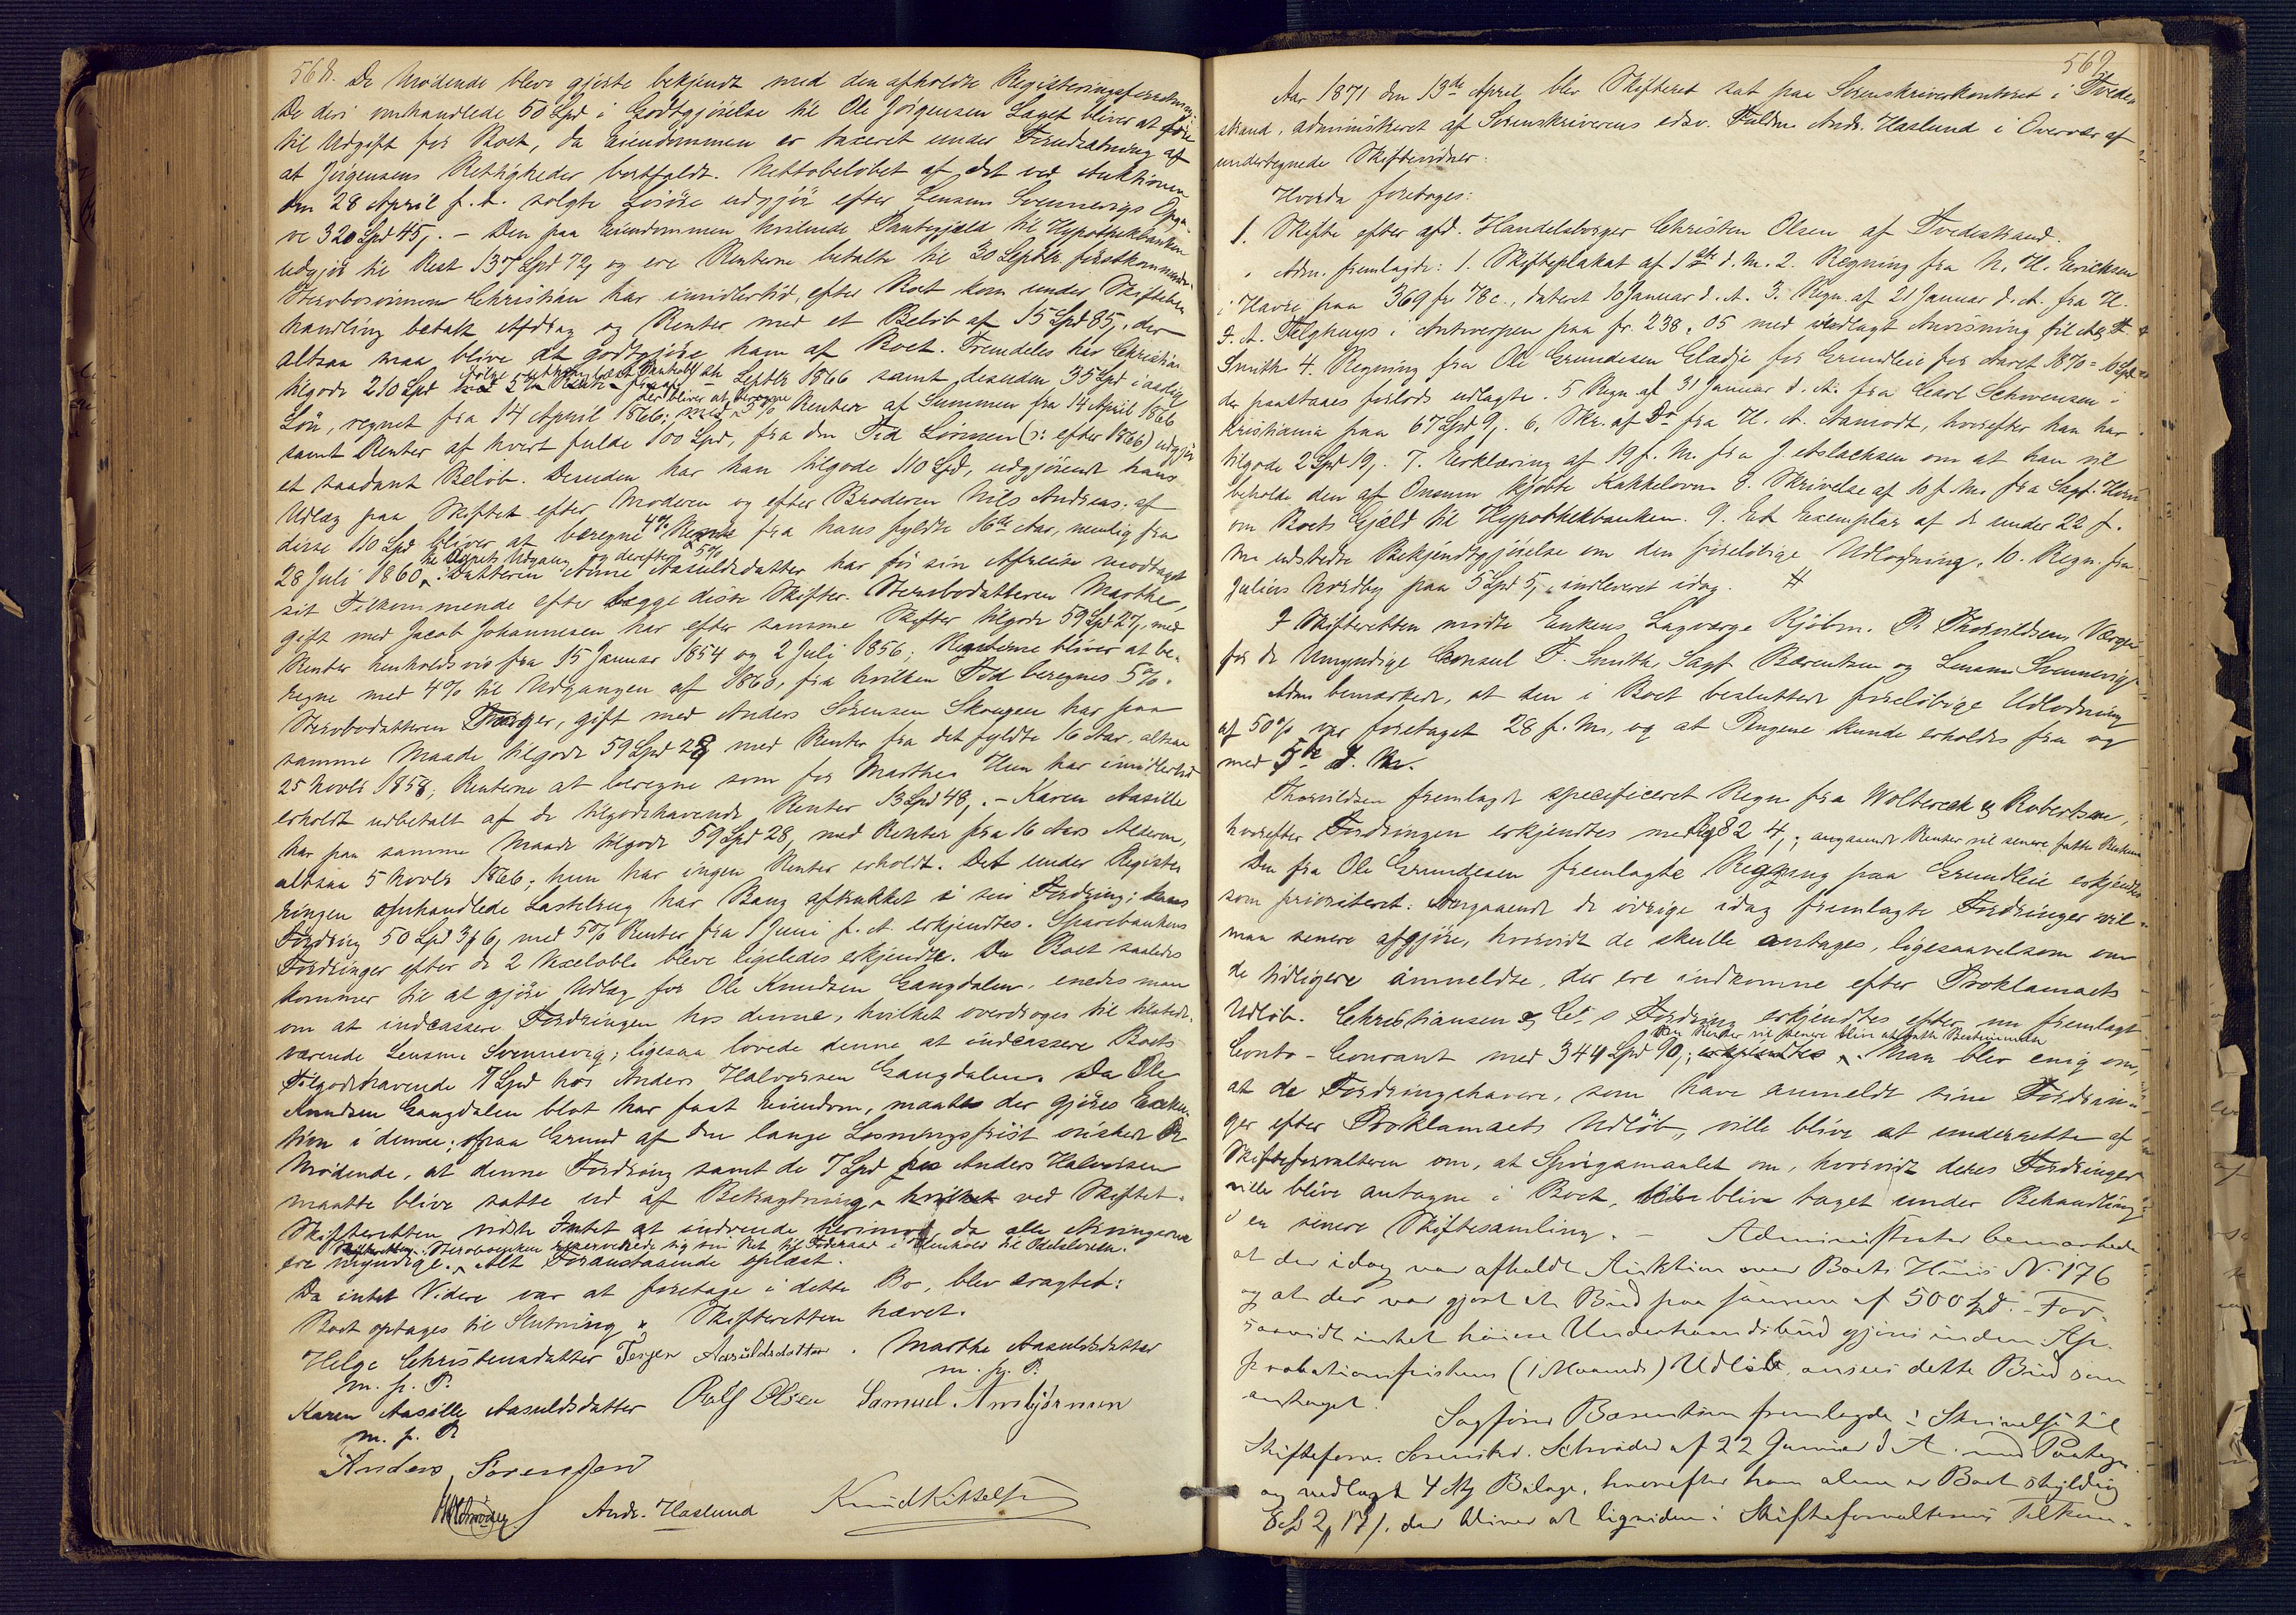 568.
De Mødende bleve gjorte bekjendt med den afholdte Registreringsforretning
De deri omhandlede 50 Spd i Godtgjørelse til Ole Jørgensen Laget bliver at føre
til Udgift for Boet, da Eiendommen er taxeret under Forudsætning af
at Jørgensens Rettigheder bortfaldt. Nettobeløbet af det ved Auktionen
den 28 April f. A. solgte Løsøre udgjør efter Lensm Svennevigs Opga-
ve 320 Spd 45 s. – Den paa Eiendommen hvilende Pantegjæld til Hypothekbanken
udgjør til Rest 137 Spd 72 s og ere Renterne betalte til 30 Septbr. førstkommende
Stervbosønnen Christian har imidlertid, efter Boet kom under Skiftebe-
handling betalt Afdrag og Renter med et Beløb af 15 Spd 85 s. der
altsaa maa blive at godtgjøre ham af Boet. Fremdeles har Christian
tilgode 210 Spd ifølge Septbr 1866 samt desuden 35 Spd i aarlig
Løn, regnet fra 14 April 1866; med der bliver at beregne 5% Renter af Summen fra 14 April 1866
samt Renter af hvert fulde 100 Spd, fra den Tid Lønnen (ɔ: efter 1866) udgjør
et saadant Beløb. Desuden har han tilgode 110 Spd, udgjørende hans
Udlæg paa Skiftet efter Moderen og efter Broderen Nils Andreas; af
disse 110 Spd bliver at beregne 4% Rente fra hans fyldte 16de Aar, nemlig fra
28 Juli 1860 til Aarets Udgang og derefter 5%. Datteren Anne Aasuldsdatter har før sin Afreise modtaget
sit Tilkommende efter begge disse Skifter. Stervbodatteren Marthe,
gift med Jacob Johannesen har efter samme Skifter tilgode 59 Spd 27 s. med
Renter henholdsvis fra 15 Januar 1854 og 2 Juli 1856; Renterne bliver at be-
regne med 4% til Udgangen af 1860, fra hvilken Tid beregnes 5%.
Stervbodatteren Tærjer, gift med Anders Sørensen Skougen har paa
samme Maade tilgode 59 Spd 28 med Renter fra det fyldte 16 Aar, altsaa
25 Novbr 1858; Renterne at beregne som for Marthe. Hun har imidlertid
erholdt udbetalt af de tilgodehavende Renter 13 Spd 48 s. – Karen Aasille
har paa samme Maade tilgode 59 Spd 28 s med Renter fra 16 Aars Alderen,
altsaa 5 Novbr 1866; hun har ingen Renter erholdt. Det under Registre-
ringen omhandlede Lastebrug har Bang aftrukket i sin Fordring; hans
Fordring 50 Spd 3 ƒ 6 s, med 5% Renter fra 1 Juni f. A. erkjendtes. Sparebankens
Fordringer efter de 2 Vexelobl. bleve ligeledes erkjendte. Da Boet saaledes
kommer til at gjøre Udlæg for Ole Knudsen Gangdalen, enedes man
om at indcassere Fordringen hos denne, hvilket overdroges til tilstede-
værende Lensm Svennevig; ligesaa lovede denne at indcassere Boets
Tilgodehavende 7 Spd hos Anders Halvorsen Gangdalen. Da Ole
Knudsen Gangdalen blot har fast Eiendom, maatte der gjøres Execu-
tion i denne; paa Grund af den lange Løsningsfrist ønskede de
Mødende, at denne Fordring samt de 7 Spd fra Anders Halvorsen
maatte blive satte ud af Betragtning ved Skiftet.
Skifteretten vidste Intet at indvende herimod, da alle Arvingerne
ere myndige. Stervboenken reserverede sig sin Ret til Føderaad i Henhold til Odelsloven. Alt Foranstaaende oplæst.
Da intet Videre var at foretage i dette Bo, blev eragtet:
Boet optages til Slutning. Skifteretten hævet.
Helge Christensdatter Terjer Aasuldsdatter. Marthe Aasuldsdatter
m. p. P. m. p. P.
Karen Aasille Aasuldsdatter Rolf Olsen Samuel Ambjørnsen
m. p. P.
Anders Sørensen
Andr. Haslund Knud Kittelsen
569
Aar 1871 den 13de April blev Skifteret sat paa Sorenskriverkontoret i Tvede-
strand, administreret af Sorenskriverens edsv. Fuldm. Andr. Haslund i Overvær af
undertegnede Skiftevidner:
Hvorda foretoges:
1. Skifte efter afd. Handelsborger Christen Olsen af Tvedestrand.
Adm. fremlagde: 1. Skifteplakat af 1ste d. M. 2. Regning fra N. H. Erichsen
i Havre paa 369 fr 78 c., dateret 10 Januar d. A. 3. Regn. af 21 Januar d. A. fra H.
F. A. Telghuys i Antwerpen paa fr. 238,05 med vedlagt Anvisning til
Smith 4. Regning fra Ole Gundesen Gladje for Grundleie for Aaret 1870 = 10 Spd
der paastaaes forlods udlagte. 5 Regn af 31 Januar d. A. fra Carl Schwensen i
Kristiania paa 67 Spd 9 s. 6. Skr. af Do fra H. A. Aamodt, hvorefter han har
tilgode 2 Spd 19 s. 7. Erklæring af 19 f. M. fra J. Aslachsen om at han vil
beholde den af Onsum kjøbte Kakkelovn 8. Skrivelse af 10 f. M. fra Sagf. Horn
om Boets Gjæld til Hypothekbanken. 9. Et Exemplar af de under 22 f.
M. udstedte Bekjendtgjørelse om den foreløbige Udlodning. 10. Regn. fra
Julius Nordby paa 5 Spd 5 s, indleveret idag.
I Skifteretten mødte Enkens Lagværge Kjøbm. P. Thorvildsen, Værgen
for de Umyndige Consul F. Smith, Sagf. Barentsen og Lensm Svennevig.
Adm bemærkede, at den i Boet besluttede foreløbige Udlodning
af 50% var foretaget 28 f. M., og at Pengene kunde erholdes fra og
med 5te d. M.
Thorvildsen fremlagde specificeret Regn fra Wolbereck & Robertson,
hvorefter Fordringen erkjendtes med 82 4 s.; angaaende Renter vil senere fattes Beslutn
Den fra Ole Gundesen fremlagte Regning paa Grundleie erkjendtes
som prioriteret. Angaaende de øvrige idag fremlagte Fordringer vil
man senere afgjøre, hvorvidt de skulle antages, ligesaavelsom om
de tidligere anmeldte, der ere indkomne efter Proklamaets
Udløb. Christiansen & Co s Fordring erkjendtes efter nu fremlagt
Conto-Courant med 344 Spd 90 s; om Renter vil senere blive at fatte Bestemmelse. Man blev enig om,
at de Fordringshavere, som have anmeldt sine Fordrin-
ger efter Proklamaets Udløb, ville blive at underrette af
Skifteforvalteren om, at Spørgsmaalet om, hvorvidt deres Fordringer
ville blive antagne i Boet, blive taget under Behandling
i en senere Skiftesamling. – Administrator bemærkede
at der idag var afholdt Auktion over Boets Huus No 176
og at der var gjort et Bud paa samme af 500 Spd. – For-
saavidt intet høiere Underhaandsbud gjøres inden Ap-
probationsfristens (1 Maaneds) Udløb, ansees dette Bud som
antaget. Sagfører Barentsen fremlagde: Skrivelse til
Skifteforv. Sorenskr. Schrøder af 22 Januar d. A. med Paategn.
og vedlagt 4 Stk Bilage, hvorefter han alene er Boet skyldig
Spd 2, 17 s. der bliver at liqvidere i Skifteforvalterens Tilkom-